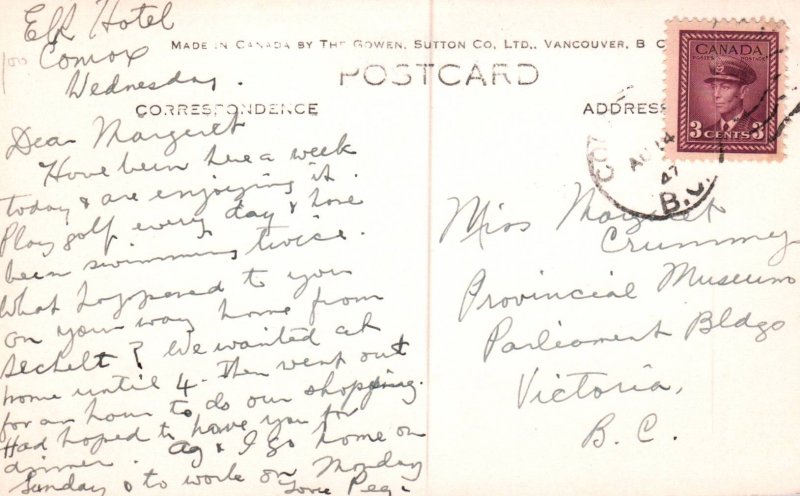 Elk Hotel
Comox
Wednesday.
MADE IN CANADA BY THE GOWEN, SUTTON CO, LTD., VANCOUVER, B C
POSTCARD
CORRESPONDENCE
Dear Margaret
Have been here a week
today & are enjoying it.
Play golf every day & have
been swimming twice.
What happened to you
on your way home from
Sechelt? We waited at
home until 4. Then went out
for an hour to do our shopping.
Had hoped to have you for
dinner. Ag & I go home on
Sunday & to work on Monday
Love Peg.
ADDRESS
CANADA
POSTES POSTAGE
3 CENTS 3
AU 14
47
B.C.
Miss Margaret
Crummy
Provincial Museum
Parliament Bldgs
Victoria,
B. C.